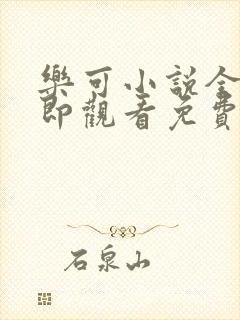 樂可小說全
即觀看免費
石泉山